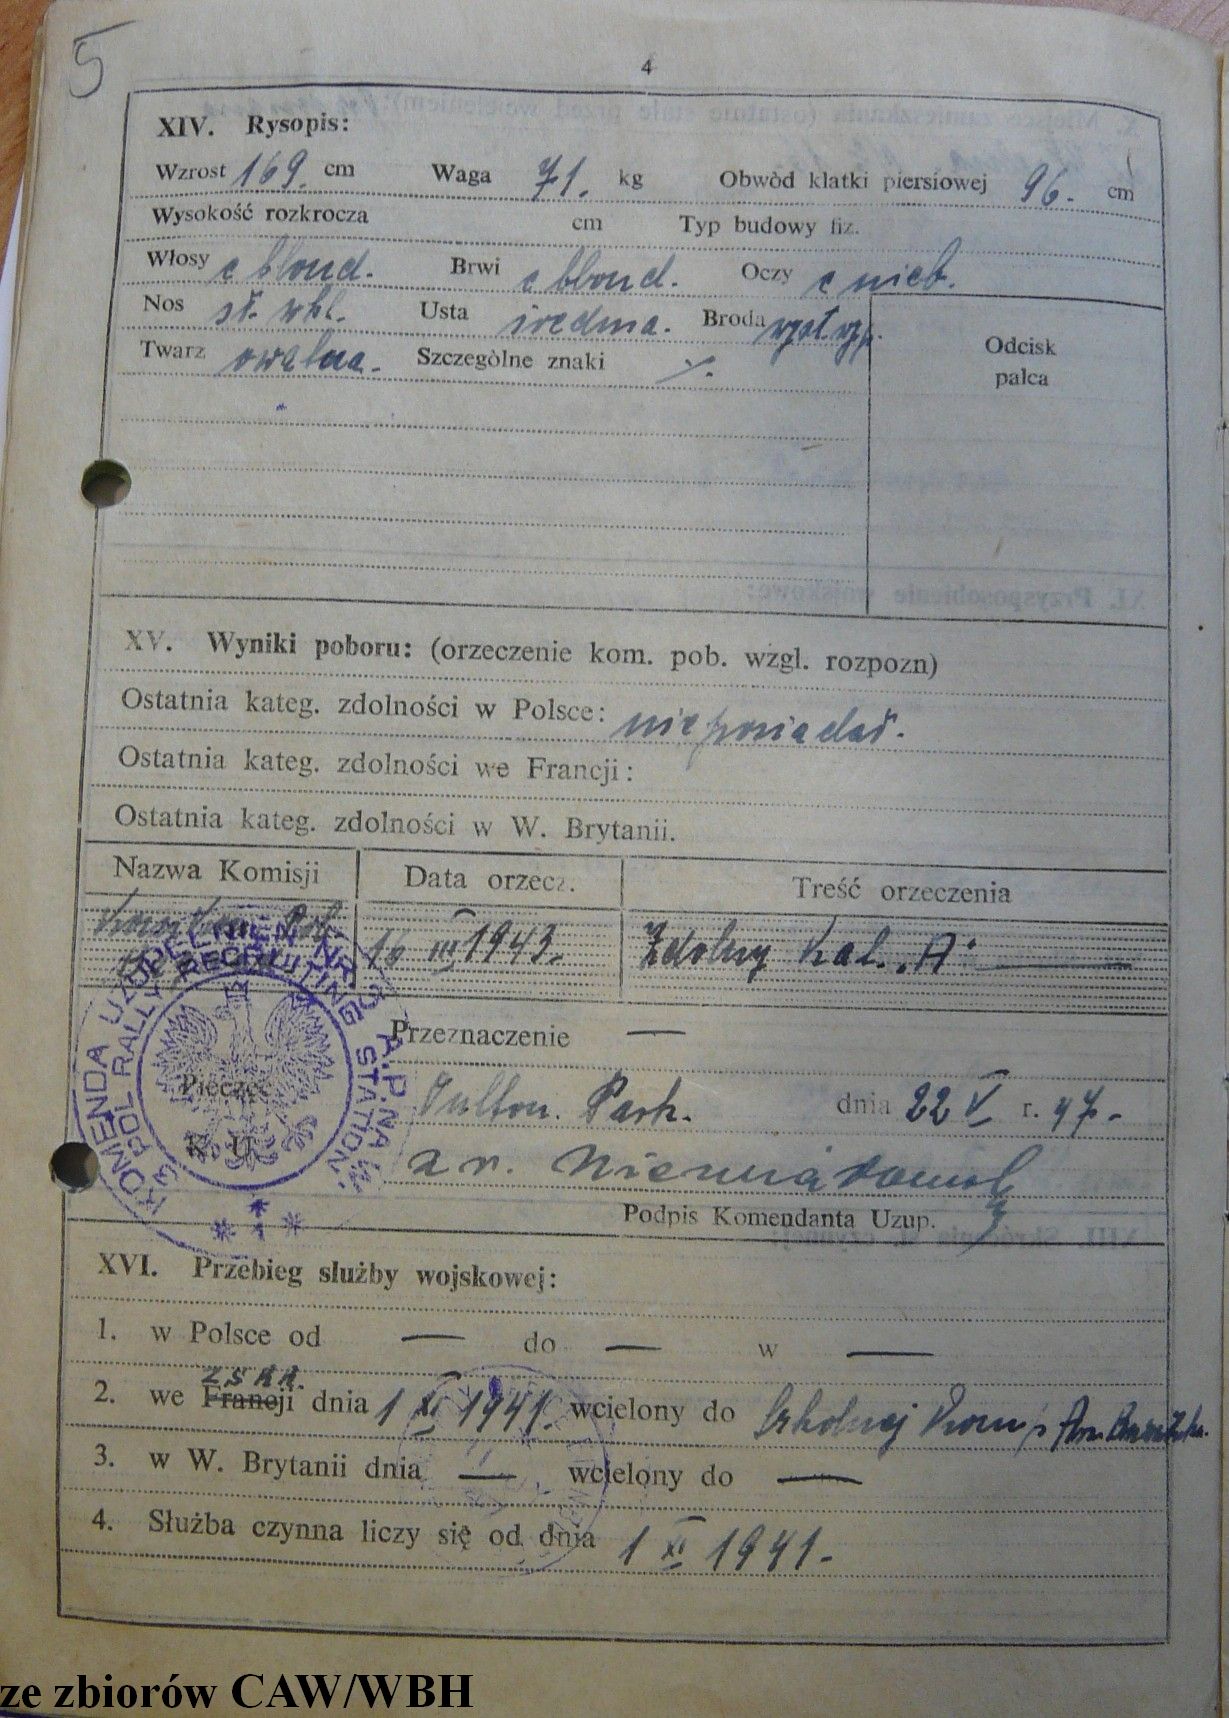 5
4
XIV. Rysopis:
Wzrost 169. cm Waga 71. kg Obwòd klatki piersiowej 96. cm
Wysokość rozkrocza cm Typ budowy fiz.
Włosy c blond. Brwi c blond. Oczy c nieb.
Nos Usta średnia. Broda
Twarz owalna. Szczegòlne znaki
Odcisk
palca
XV. Wyniki poboru: (orzeczenie kom. pob. wzgl. rozpozn)
Ostatnia kateg. zdolności w Polsce: nie posiadał.
Ostatnia kateg. zdolności we Francji:
Ostatnia kateg. zdolności w W. Brytanii.
Nazwa Komisji Data orzecz. Treść orzeczenia
16 III 1943. Zdolny kat. "A"
KOMENDA UZUPEŁNIEŃ NR 3 A.P.NA W.
3 POL RALLY RECRUITING STATION
Pieczęć
K. U.
1
Przeznaczenie —
Park. dnia 22 V r. 47.
Podpis Komendanta Uzup.
XVI. Przebieg służby wojskowej:
1. w Polsce od — do — w —
ZSRR.
2. we Francji dnia 1 XI 1941. wcielony do Szkolnej
3. w W. Brytanii dnia — wcielony do —
4. Służba czynna liczy się od dnia 1 XI 1941.
ze zbiorów CAW/WBH